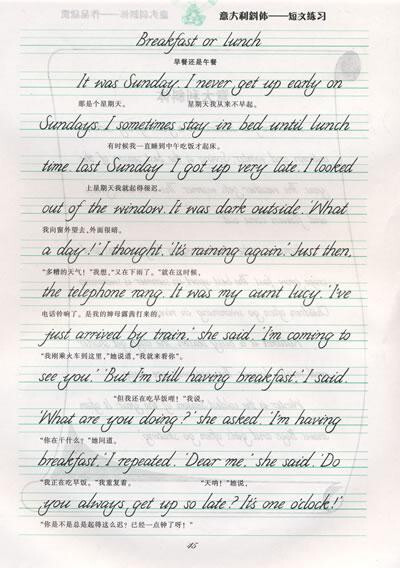 意大利斜体——短文练习
Breakfast or lunch
早餐还是午餐
It was Sunday. I never get up early on
那是个星期天。 星期天我从来不早起。
Sundays. I sometimes stay in bed until lunch
有时候我一直睡到中午吃饭才起床。
time. last Sunday I got up very late. I looked
上星期天我就起得很迟。
out of the window. It was dark outside. 'What
我向窗外望去,外面很暗。
a day!' I thought. 'It's raining again.' Just then,
“多糟的天气!”我想,“又在下雨了。”就在这时候,
the telephone rang. It was my aunt lucy. 'I've
电话铃响了。是我的婶母露茜打来的。
just arrived by train,' she said. 'I'm coming to
“我刚乘火车到这里,”她说道,“我就来看你”。
see you.' 'But I'm still having breakfast,' I said.
“但我还在吃早饭哩!”我说。
'What are you doing?' she asked. 'I'm having
“你在干什么?”她问道。
breakfast,' I repeated. 'Dear me,' she said. 'Do
“我正在吃早饭。”我重复着。 “天呐!”她说,
you always get up so late? It's one o'clock!'
“你是不是总是起得这么迟?已经一点钟了呀!”
45